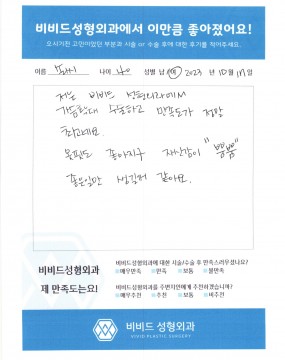 비비드성형외과에서 이만큼 좋아졌어요!
오시기전 고민이었던 부분과 시술 or 수술 후에 대한 후기를 적어주세요.
이름 나이 성별 남 여 2023 년 10 월 17 일
저는 비비드 성형외과에서
가슴확대 수술하고 만족도가 정말
최고예요.
옷핏도 좋아지구 자신감이 "뿜뿜"
좋은일만 생길거 같아요.
비비드성형외과
제 만족도는요!
비비드성형외과에 대한 시술/수술 후 만족스러우셨나요?
매우만족 만족 보통 불만족
비비드성형외과를 주변지인에게 추천하겠습니까?
매우추천 추천 보통 비추천
비비드 성형외과
VIVID PLASTIC SURGERY